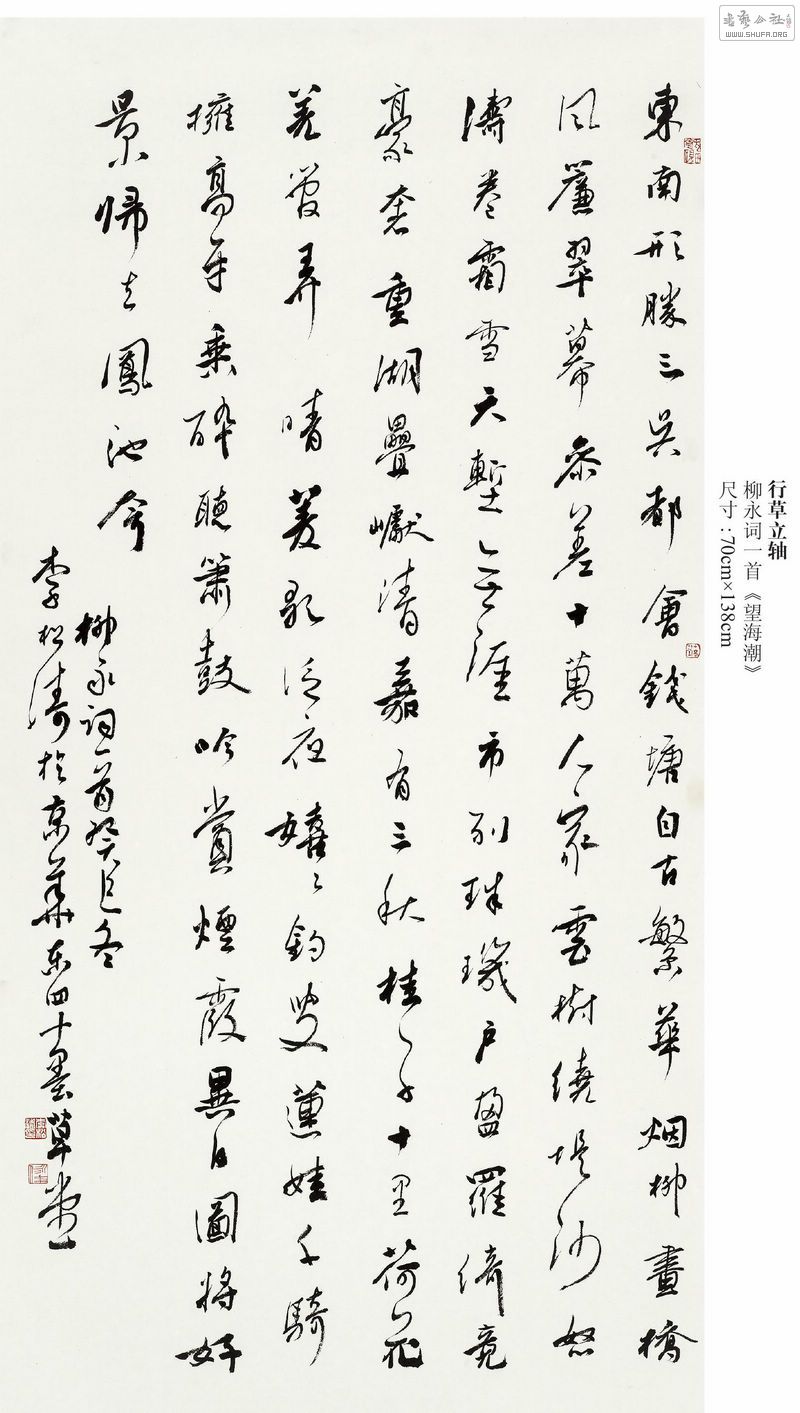 書藝公社
WWW.SHUFA.ORG
行草立轴
柳永词一首《望海潮》
尺寸:70cm×138cm
東南形勝三吳都會錢塘自古繁華烟柳畫橋
风簾翠幕参差十萬人家雲樹繞堤沙怒
濤卷霜雪天塹無涯市列珠璣户盈羅綺竞
豪奢重湖疊巘清嘉有三秋桂子十里荷花
羌管弄晴菱歌泛夜嬉〻釣叟蓮娃千騎
擁高牙乘醉聽簫鼓吟賞煙霞異日圖將好
景歸去鳳池夸
柳永詞一首癸巳冬
李松濤於京華东四十墨草堂